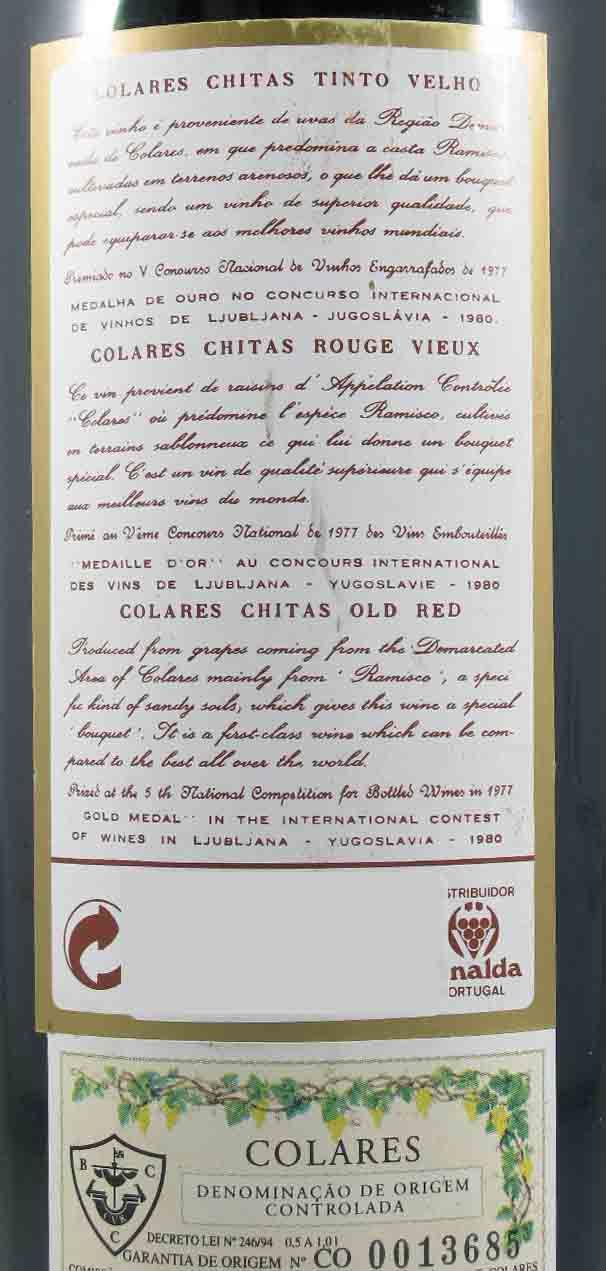 COLARES CHITAS TINTO VELHO
Este vinho é proveniente de uvas da Região Demar-
cada de Colares, em que predomina a casta Ramisco,
cultivadas em terrenos arenosos, o que lhe dá um bouquet
especial, sendo um vinho de superior qualidade, que
pode equiparar-se aos melhores vinhos mundiais.
Premiado no V Concurso Nacional de Vinhos Engarrafados de 1977
MEDALHA DE OURO NO CONCURSO INTERNACIONAL
DE VINHOS DE LJUBLJANA - JUGOSLÁVIA - 1980.
COLARES CHITAS ROUGE VIEUX
Ce vin provient de raisins d' Appélation Contrôlée
"Colares" où prédomine l'espéce Ramisco, cultivés
en terrains sablonneux ce qui lui donne un bouquet
spécial. C'est un vin de qualité supérieure qui s'équipe
aux meilleurs vins du monde.
Primé au Vème Concours National de 1977 des Vins Embouteillés
"MEDAILLE D'OR" AU CONCOURS INTERNATIONAL
DES VINS DE LJUBLJANA - YUGOSLAVIE - 1980
COLARES CHITAS OLD RED
Produced from grapes coming from the Demarcated
Area of Colares mainly from ' Ramisco ', a speci
fic kind of sandy soils, which gives this wine a special
' bouquet '. It is a first-class wine which can be com-
pared to the best all over the world.
Prized at the 5 th National Competition for Bottled Wines in 1977
GOLD MEDAL" IN THE INTERNATIONAL CONTEST
OF WINES IN LJUBLJANA - YUGOSLAVIA - 1980
STRIBUIDOR
nalda
ORTUGAL
B C C
CVR
COLARES
DENOMINAÇÃO DE ORIGEM
CONTROLADA
DECRETO LEI Nº 246/94 0,5 A 1,01
GARANTIA DE ORIGEM Nº CO 0013685
COLARES